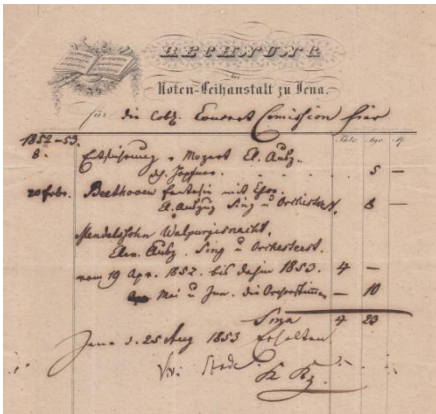 RECHNUNG
der
Noten-Leihanstalt zu Jena.
für die Concert Comission hier
1852-53. Thlr. Sgr.
8. Entführung v Mozart Cl. Ausz.
5 —
20 Febr. Beethoven Fantasie mit Chor.
Cl. Auszug Sing u Orchesterst. 8 —
Mendelssohn Walpurgisnacht,
Clav. Ausz. Sing u Orchesterst.
vom 19 Apr. 1852. bis dahin 1853. 4 —
Mai u Jun. die Orchesterstimmen — 10
Suma 4 23
Jena d. 25 Aug 1853 Erhalten